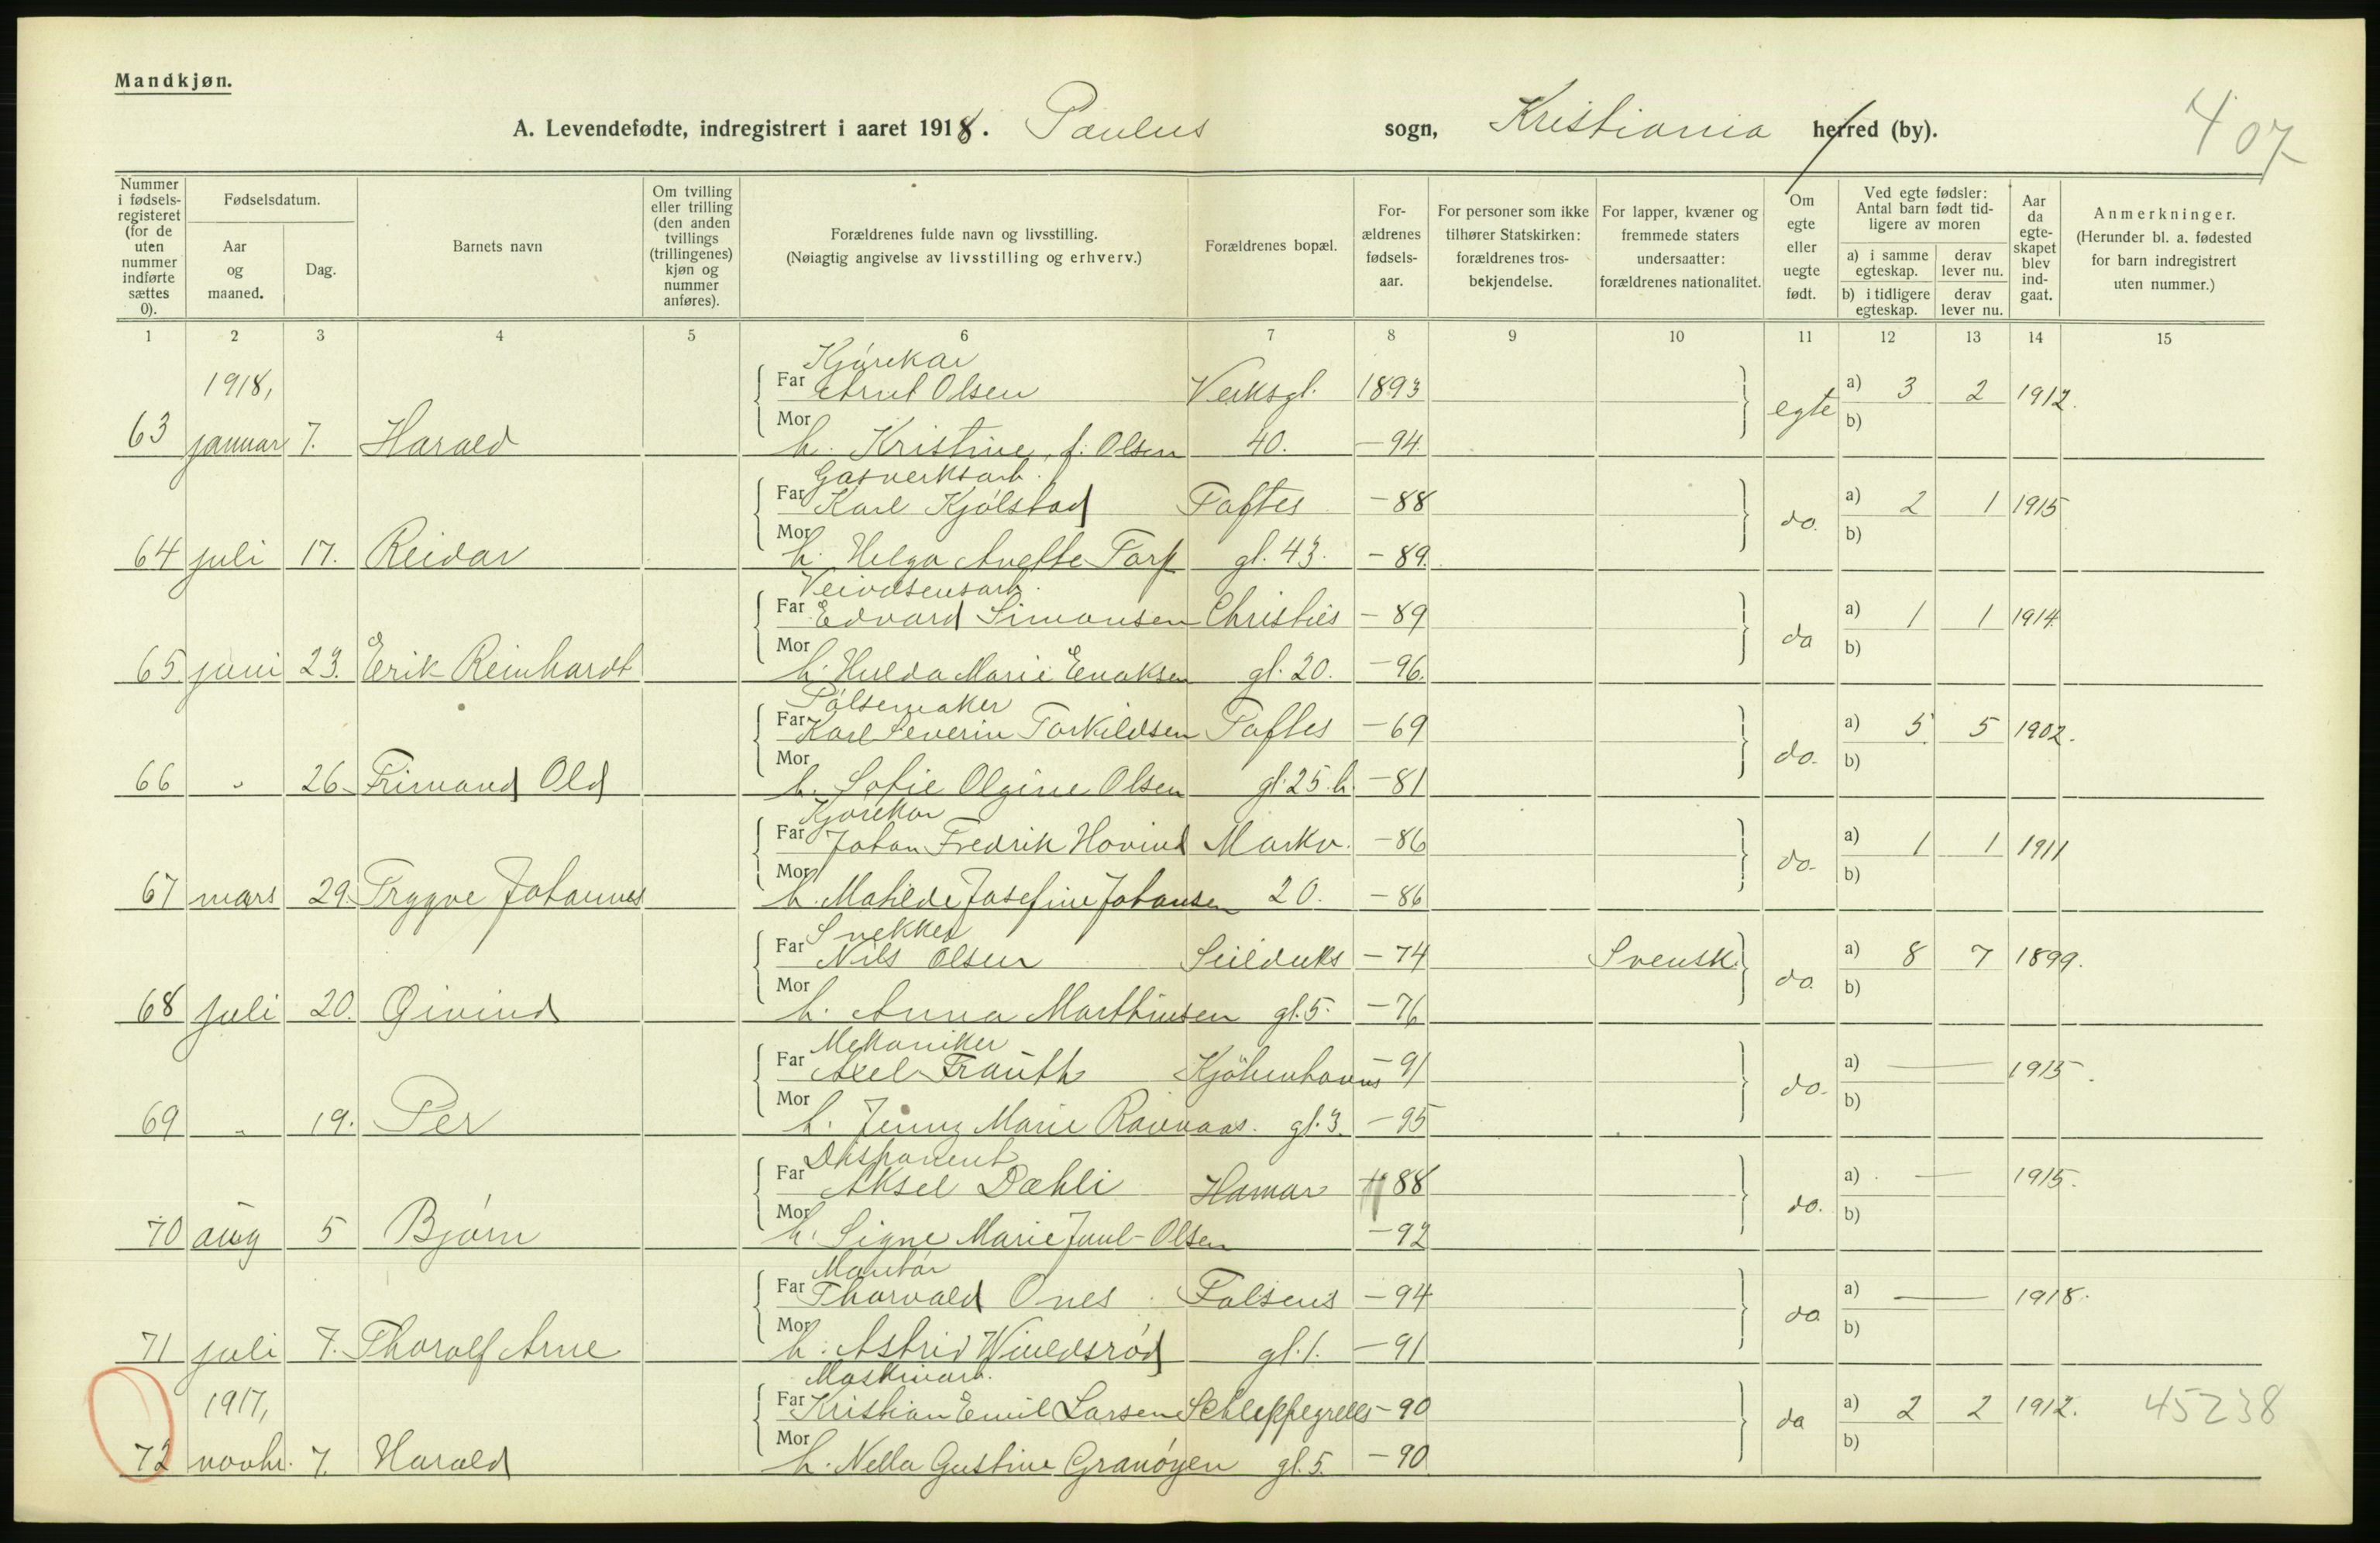 Mandkjøn.
A. Levendefødte, indregistrert i aaret 1918. Paulus sogn, Kristiania herred (by). 407
Nummer i fødselsregisteret (for de uten nummer indførte sættes 0).
Fødselsdatum.
Aar og maaned.
Dag.
Barnets navn
Om tvilling eller trilling (den anden tvillings (trillingenes) kjøn og nummer anføres).
Forældrenes fulde navn og livsstilling.
(Nøiagtig angivelse av livsstilling og erhverv.)
Forældrenes bopæl.
Forældrenes fødselsaar.
For personer som ikke tilhører Statskirken: forældrenes trosbekjendelse.
For lapper, kvæner og fremmede staters undersaatter: forældrenes nationalitet.
Om egte eller uegte født.
Ved egte fødsler: Antal barn født tidligere av moren
a) i samme egteskap. derav lever nu.
b) i tidligere egteskap. derav lever nu.
Aar da egteskapet blev indgaat.
Anmerkninger.
(Herunder bl. a. fødested for barn indregistrert uten nummer.)
1 2 3 4 5 6 7 8 9 10 11 12 13 14 15
1918, Kjørekar
Far Arnt Olsen Verksgt. 1893 egte a) 3 2 1912.
63 januar 7. Harald Mor h. Kristine, f. Olsen 40. -94. b)
Gasverksarb.
Far Karl Kjølstad Toftes -88 do. a) 2 1 1915
64 juli 17. Reidar Mor h. Helga Anette Torp gt. 43. -89. b)
Veivæsensarb.
Far Edvard Simonsen Christies -89 do a) 1 1 1914
65 juni 23. Erik Reinhardt Mor h. Hulda Marie Enoksen gt. 20. -96. b)
Pølsemaker
Far Karl Severin Torkildsen Toftes -69 do. a) 5 5 1902.
66 " 26. Frimand Old Mor h. Sofie Olgine Olsen gt. 25.b. -81 b)
Kjørekar
Far Johan Fredrik Hovind Markv. -86 do. a) 1 1 1911
67 mars 29. Trygve Johannes Mor h. Matilde Josefine Johansen 20. -86 b)
Snekker
Far Nils Olsen Seilduks -74 Svensk do. a) 8 7 1899.
68 juli 20. Øivind Mor h. Anna Marthinsen gt. 5. -76 b)
Mekaniker
Far Axel Frauth Kjøbenhavns -91 do. a) — 1915.
69 " 19. Per Mor h. Jenny Marie gt. 3. -95 b)
Disponent
Far Aksel Dæhli Hamar -88 do. a) — 1915.
70 aug 5 Bjørn Mor h. Signe Marie Juul-Olsen -92 b)
Montør
Far Thorvald Ones Falsens -94 do a) — 1918.
71 juli 7. Thoralf Arne Mor h. Astrid gt. 1. -91 b)
1917, Maskinarb.
Far Kristian Emil Larsen Schleppegrells -90 do a) 2 2 1912. 45238
72 novbr. 7. Harald Mor h. Nella Gustine Granøyen gt. 5. -90 b)